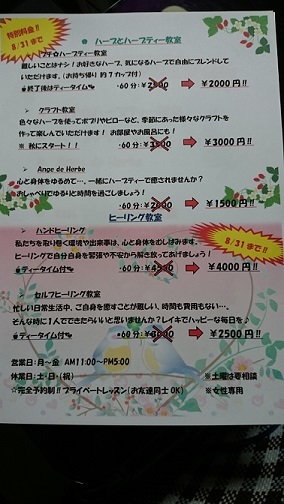 特別料金!!
8/31まで
● ハーブとハーブティー教室
プチ☆ハーブティー教室
難しいことはナシ!お好きなハーブ、気になるハーブで自由にブレンドして
いただけます。(お持ち帰り 約7カップ付)
★終了後はティータイム☕ ・60分: ¥2500 ➡ ¥2000円!!
➢ クラフト教室
色々なハーブを使ってポプリやピローなど、季節にあった様々なクラフトを
作って楽しんでいただけます! お部屋やお風呂にも!
※ 秋にスタート!! ・60分: ¥3500 ➡ ¥3000円!!
➢ Ange de Herbe
心と身体をゆるめて…、一緒にハーブティーで癒されませんか?
おしゃべりでゆるりと時間を過ごしましょう!
・60分: ➡ ¥1500円!!
● ヒーリング教室
8/31まで!!
➢ ハンドヒーリング
私たちを取り巻く環境や出来事は、心と身体をむしばみます。
ヒーリングで自分自身を緊張や不安から解き放ってあげましょう!
★ティータイム付☕ ・60分: ¥4500 ➡ ¥4000円!!
➢ セルフヒーリング教室
忙しい日常生活中、ご自身を癒すことが難しい、時間も費用もない…、
そんな時に1人でできたらいいと思いませんか?レイキでハッピーな毎日を♪
★ティータイム付☕ ・60分: ¥3000 ➡ ¥2500円!!
営業日:月~金 AM11:00~PM5:00
休業日:土・日・(祝) ※土曜は要相談
☆完全予約制!!プライベートレッスン(お友達同士OK) ※女性専用